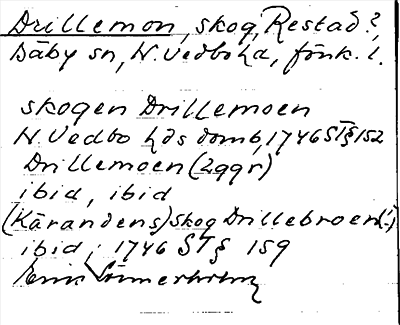 Drillemon, skog, Restad?,
Bäby sn, N. Vedbo hd, Jönk. l.
skogen Drillemoen
N. Vedbo hds domb, 1746 ST § 152
Drillemoen (2ggr)
ibid, ibid
(Kärandens) skog Drillebroen (!)
ibid; 1746 ST § 159
Erik